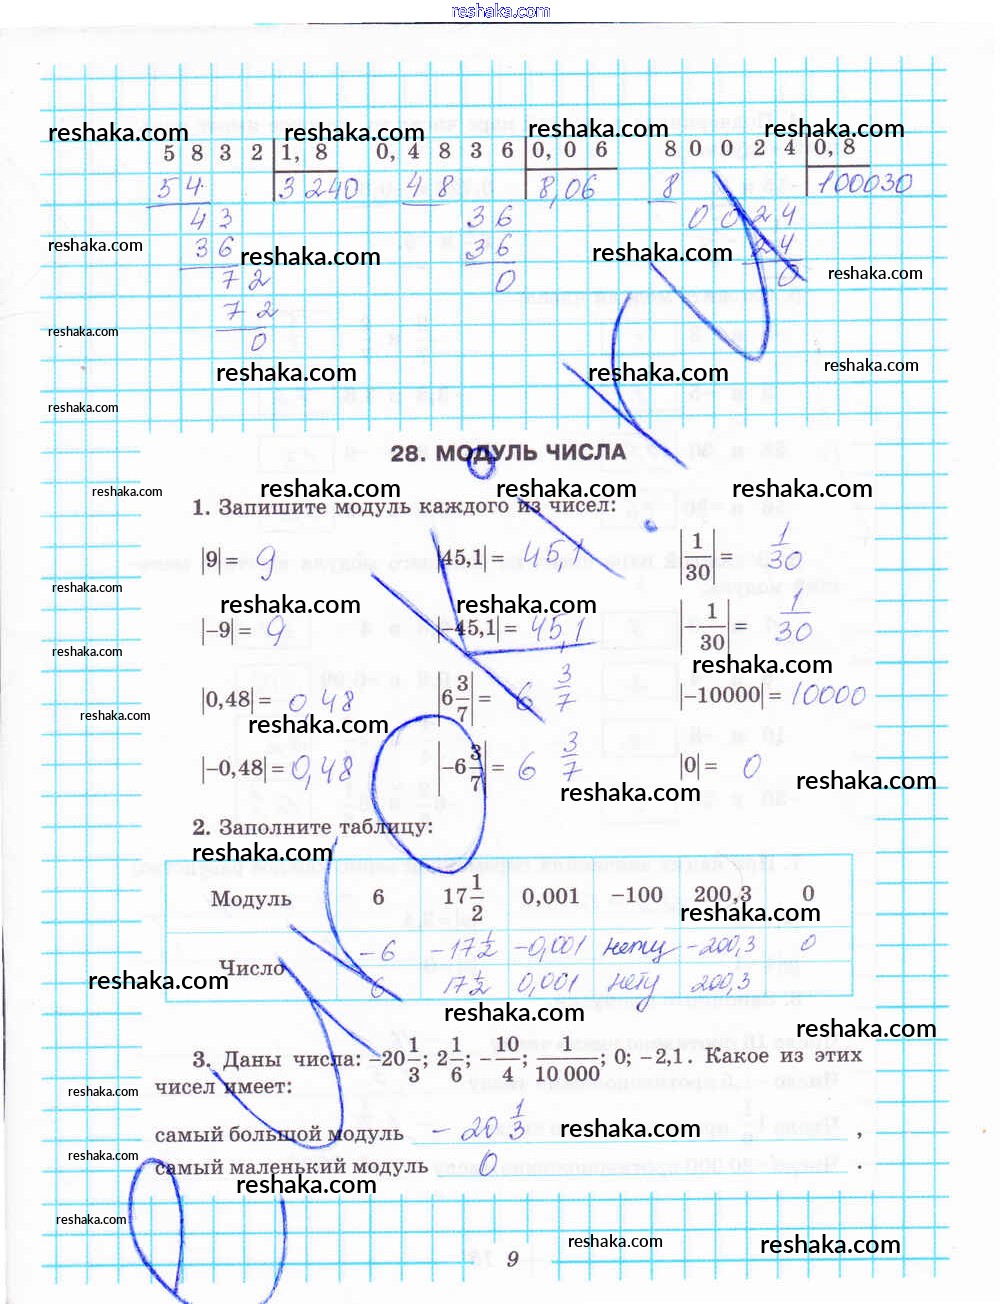 reshaka.com
reshaka.com reshaka.com reshaka.com reshaka.com
5 8 3 2 | 1, 8 0, 4 8 3 6 | 0, 0 6 8 0 0 2 4 | 0, 8
5 4 3 240 4 8 8,06 8 100030
4 3 3 6 0 0 2 4
reshaka.com 3 6 reshaka.com 3 6 reshaka.com 2 4
7 2 0 0 reshaka.com
7 2
reshaka.com 0
reshaka.com reshaka.com reshaka.com
reshaka.com
28. МОДУЛЬ ЧИСЛА
reshaka.com reshaka.com reshaka.com reshaka.com
1. Запишите модуль каждого из чисел:
|9| = 9 |45,1| = 45,1 |1/30| = 1/30
reshaka.com reshaka.com reshaka.com
|−9| = 9 |−45,1| = 45,1 |−1/30| = 1/30
reshaka.com reshaka.com
|0,48| = 0,48 |6 3/7| = 6 3/7 |−10000| = 10000
reshaka.com reshaka.com
|−0,48| = 0,48 |−6 3/7| = 6 3/7 |0| = 0
reshaka.com reshaka.com
2. Заполните таблицу:
reshaka.com
Модуль 6 17 1/2 0,001 −100 200,3 0
reshaka.com
Число −6 −17 1/2 −0,001 нету −200,3 0
6 17 1/2 0,001 нету 200,3
reshaka.com
reshaka.com reshaka.com
3. Даны числа: −20 1/3; 2 1/6; −10/4; 1/10 000; 0; −2,1. Какое из этих
чисел имеет:
reshaka.com
самый большой модуль −20 1/3 reshaka.com ,
reshaka.com
самый маленький модуль 0 .
reshaka.com
reshaka.com
reshaka.com reshaka.com
9